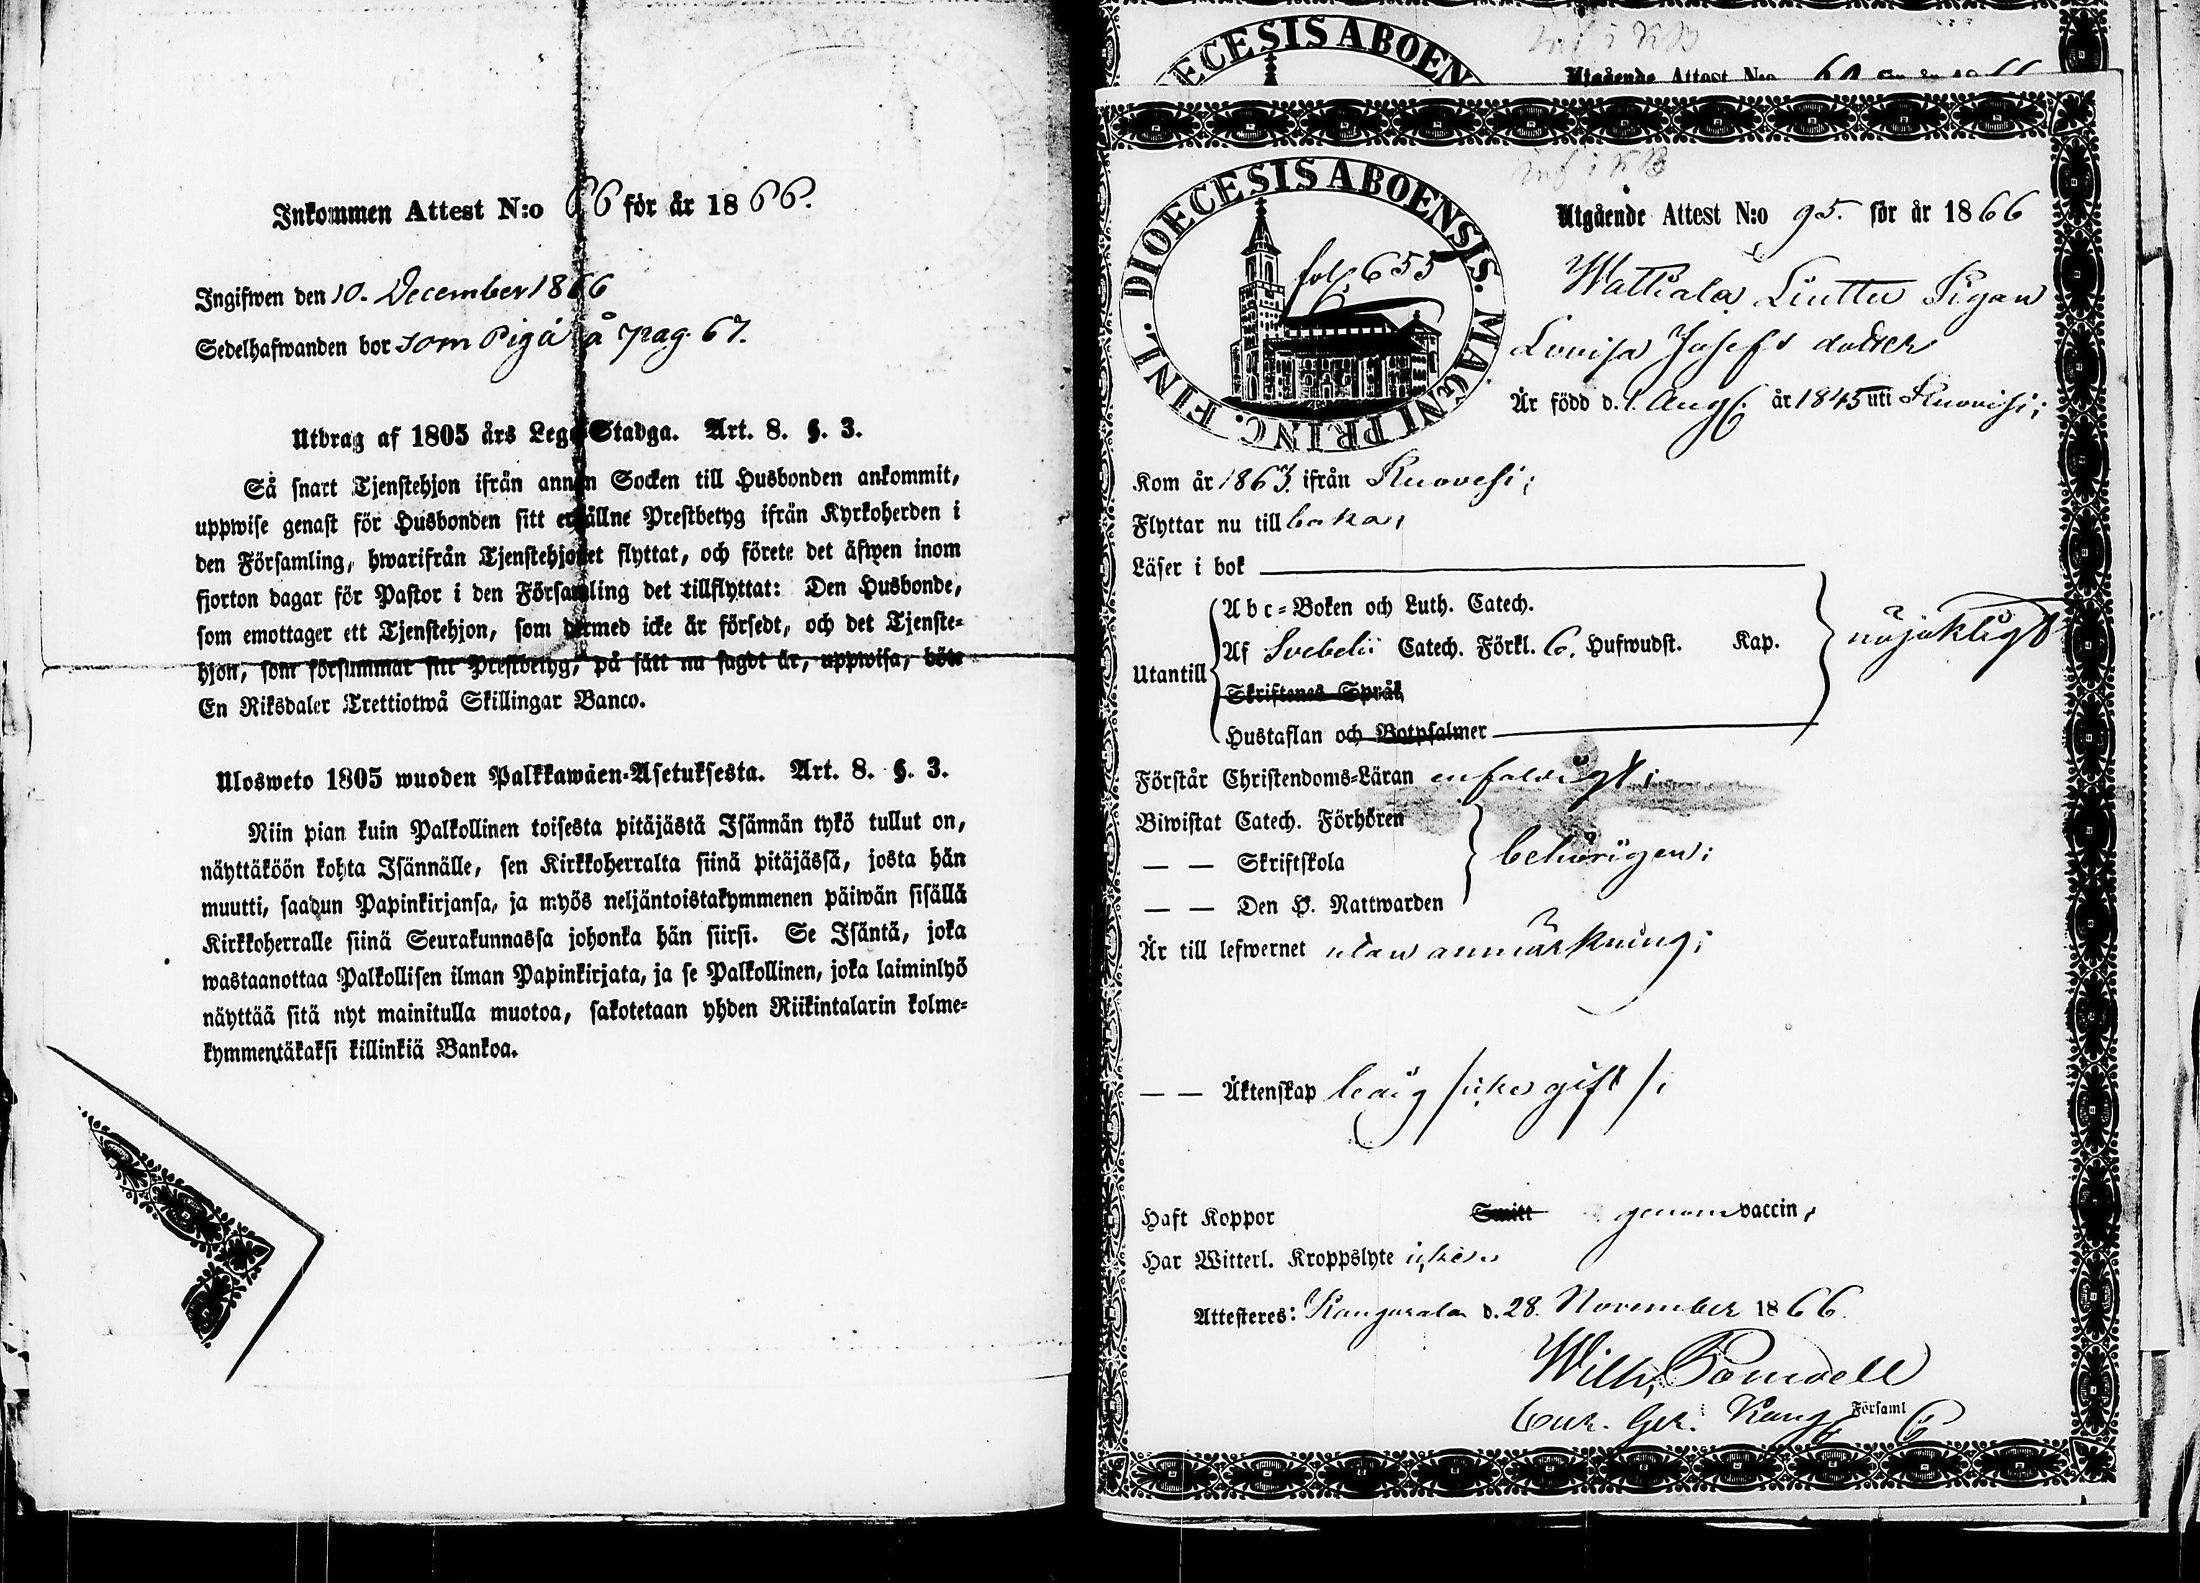 Inkommen Attest N:o 66 för år 1866.
Ingifwen den 10. December 1866
Sedelhafwanden bor som Piga å pag. 67.
Utdrag af 1805 års Lego-Stadga. Art. 8. §. 3.
Så snart Tjenstehjon ifrån annan Socken till Husbonden ankommit,
uppwise genast för Husbonden sitt erhållne Prestbetyg ifrån Kyrkoherden i
den Församling, hwarifrån Tjenstehjonet flyttat, och förete det äfwen inom
fjorton dagar för Pastor i den Församling det tillflyttat: Den Husbonde,
som emottager ett Tjenstehjon, som dermed icke är försedt, och det Tjenste-
hjon, som försummar sitt Prestbetyg, på sätt nu sagdt är, uppwisa, böte
En Riksdaler Trettiotwå Skillingar Banco.
Ulosweto 1805 wuoden Palkkawäen-Asetuksesta. Art. 8. §. 3.
Niin pian kuin Palkollinen toisesta pitäjästä Isännän tykö tullut on,
näyttäköön kohta Isännälle, sen Kirkkoherralta siinä pitäjässä, josta hän
muutti, saadun Papinkirjansa, ja myös neljäntoistakymmenen päiwän sisällä
Kirkkoherralle siinä Seurakunnassa johonka hän siirsi. Se Isäntä, joka
wastaanottaa Palkollisen ilman Papinkirjata, ja se Palkollinen, joka laiminlyö
näyttää sitä nyt mainitulla muotoa, sakotetaan yhden Riikintalarin kolme-
kymmentäkaksi killinkiä Bankoa.
DIOECESIS ABOEN
Utgående Attest N:o 60 för år 1866
DIOECESIS ABOENSIS. MAGNI PRINC. FINL.
fol. 655
Utgående Attest N:o 95. för år 1866
Wattiala Liuttu Pigan
Lovisa Josefs dotter
Är född d. 1. Aug. år 1845 uti Kuovesi;
Kom år 1863. ifrån Kuovesi;
Flyttar nu till baka;
Läser i bok
Abc-Boken och Luth. Catech.
Utantill Af Svebelii Catech. Förkl. 6. Hufwudst. Kap. nöjaktigt
Skriftenes Språk
Hustaflan och Botpsalmer
Förstår Christendoms-Läran enfaldigt;
Biwistat Catech. Förhören
— — Skriftskola behörigen;
— — Den H. Nattwarden
Är till lefwernet utan anmärkning;
— — Äktenskap ledig /icke gift/;
Haft Koppor Smitt genom vaccin;
Har Witterl. Kroppslyte icke
Attesteres: Kangasala d. 28. November 1866.
Wilh.
Cur. Ger. Kang Församl